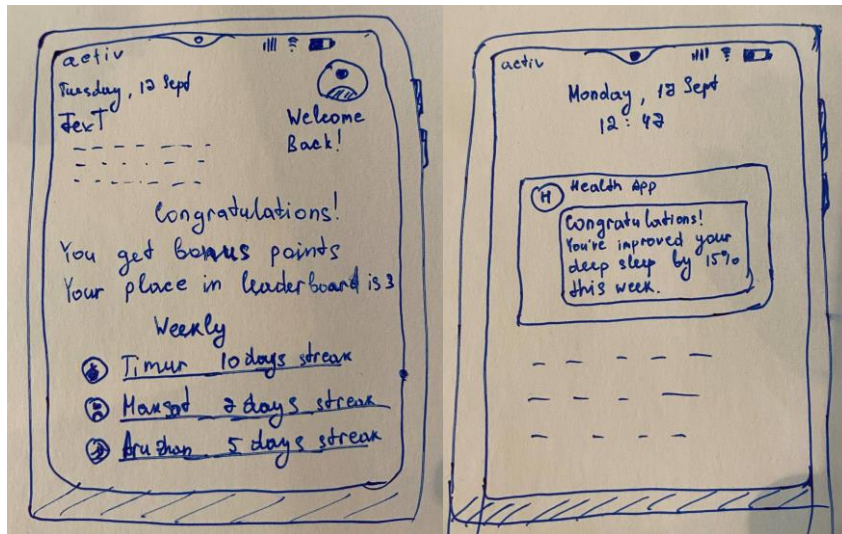 activ
Tuesday, 12 Sept
Text
Welcome
Back!
Congratulations!
You get bonus points
Your place in leaderboard is 3
Weekly
Timur 10 days streak
days streak
Aruzhan 5 days streak
activ
Monday, 18 Sept
12:42
H Health App
Congratulations!
You're improved your
deep sleep by 15%
this week.